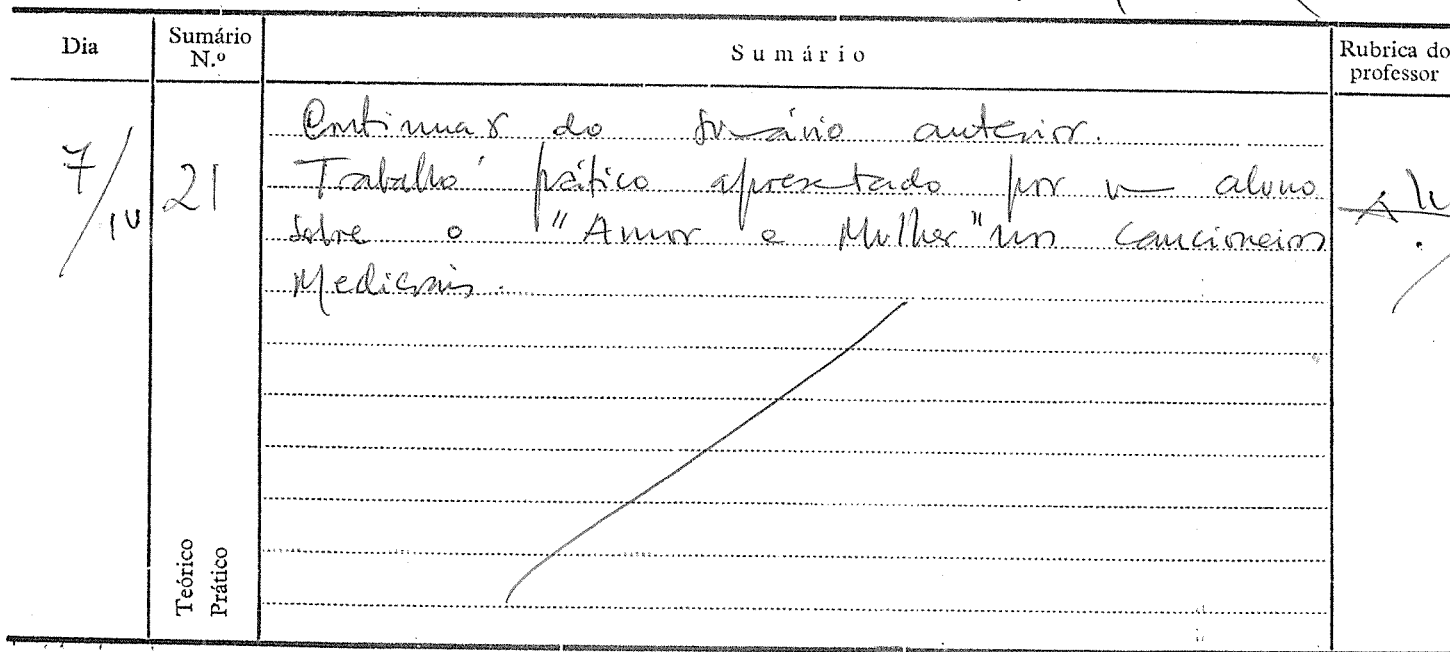 Dia
Sumário N.º
Sumário
Rubrica do professor
7/IV
21
Continuar do sumário anterior.
Trabalho prático apresentado por um aluno
sobre o "Amor e Mulher" nos Cancioneiros
Medievais.
Teórico
Prático